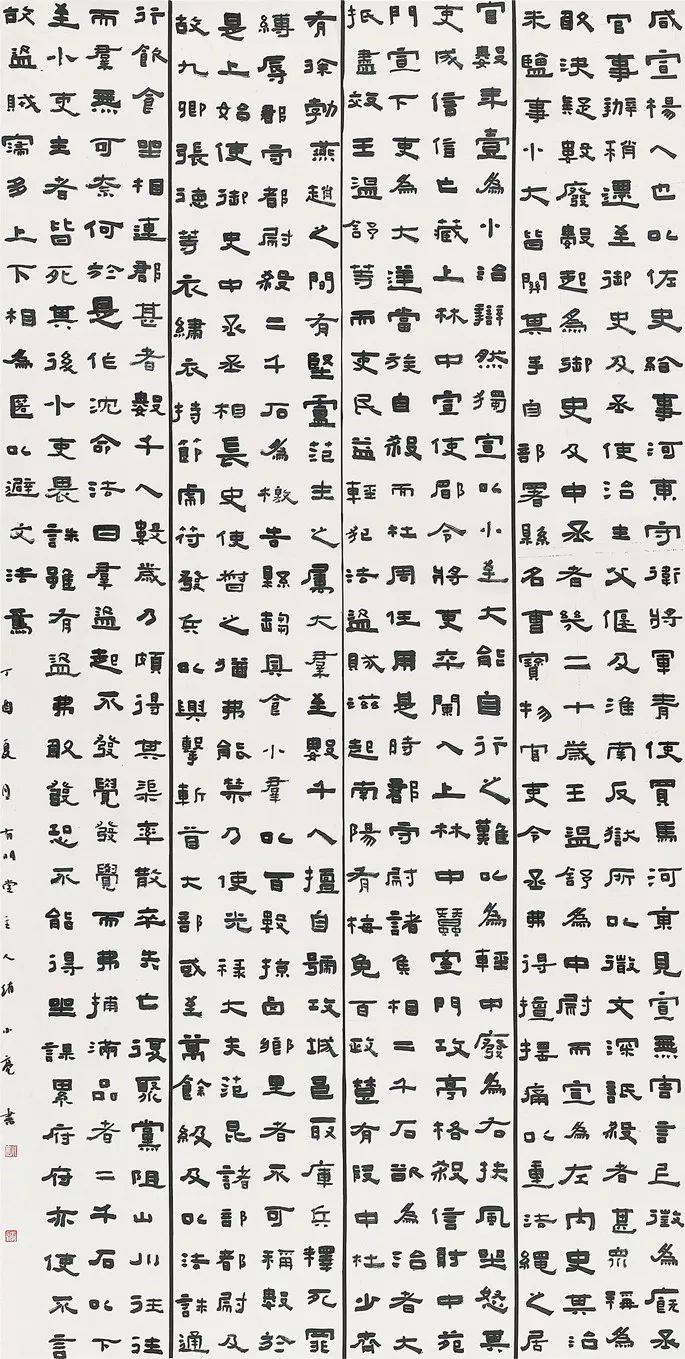 咸宣楊人也以佐史給事河東守衛將軍青使買馬河東見宣無害言上徵為廄丞
官事辦稍遷至御史及丞使治主父偃及淮南反獄所以微文深詆殺者甚眾稱為
敢決疑數廢數起為御史及中丞者幾二十歲王溫舒為中尉而宣為左內史其治
米鹽事小大皆關其手自部署縣名曹寶物官吏令丞弗得擅搖痛以重法繩之居
官數年壹為小治辯然獨宣以小至大能自行之難以為輕中廢為右扶風坐怒其
吏成信信亡藏上林中宣使郿令將吏卒闌入上林中蠶室門攻亭格殺信射中苑
門宣下吏為大逆當族自殺而杜周任用是時郡守尉諸侯相二千石欲為治者大
抵盡效王溫舒等而吏民益輕犯法盜賊滋起南陽有梅免百政楚有段中杜少齊
有徐勃燕趙之間有堅盧范主之屬大羣至數千人擅自號攻城邑取庫兵釋死罪
縛辱郡守都尉殺二千石為檄告縣趨具食小羣以百數掠鹵鄉里者不可稱數於
是上始使御史中丞丞相長史使督之猶弗能禁乃使光祿大夫范昆諸部都尉及
故九卿張德等衣繡衣持節虎符發兵以興擊斬首大部或至萬餘級及以法誅通
行飲食坐相連郡甚者數千人數歲乃頗得其渠率散卒失亡復聚黨阻山川往往
而羣無可奈何於是作沈命法曰羣盜起不發覺發覺而弗捕滿品者二千石以下
至小吏主者皆死其後小吏畏誅雖有盜弗敢發恐不能得坐課累府府亦使不言
故盜賊寖多上下相為匿以避文法焉
丁酉夏月有明堂主人小亮書